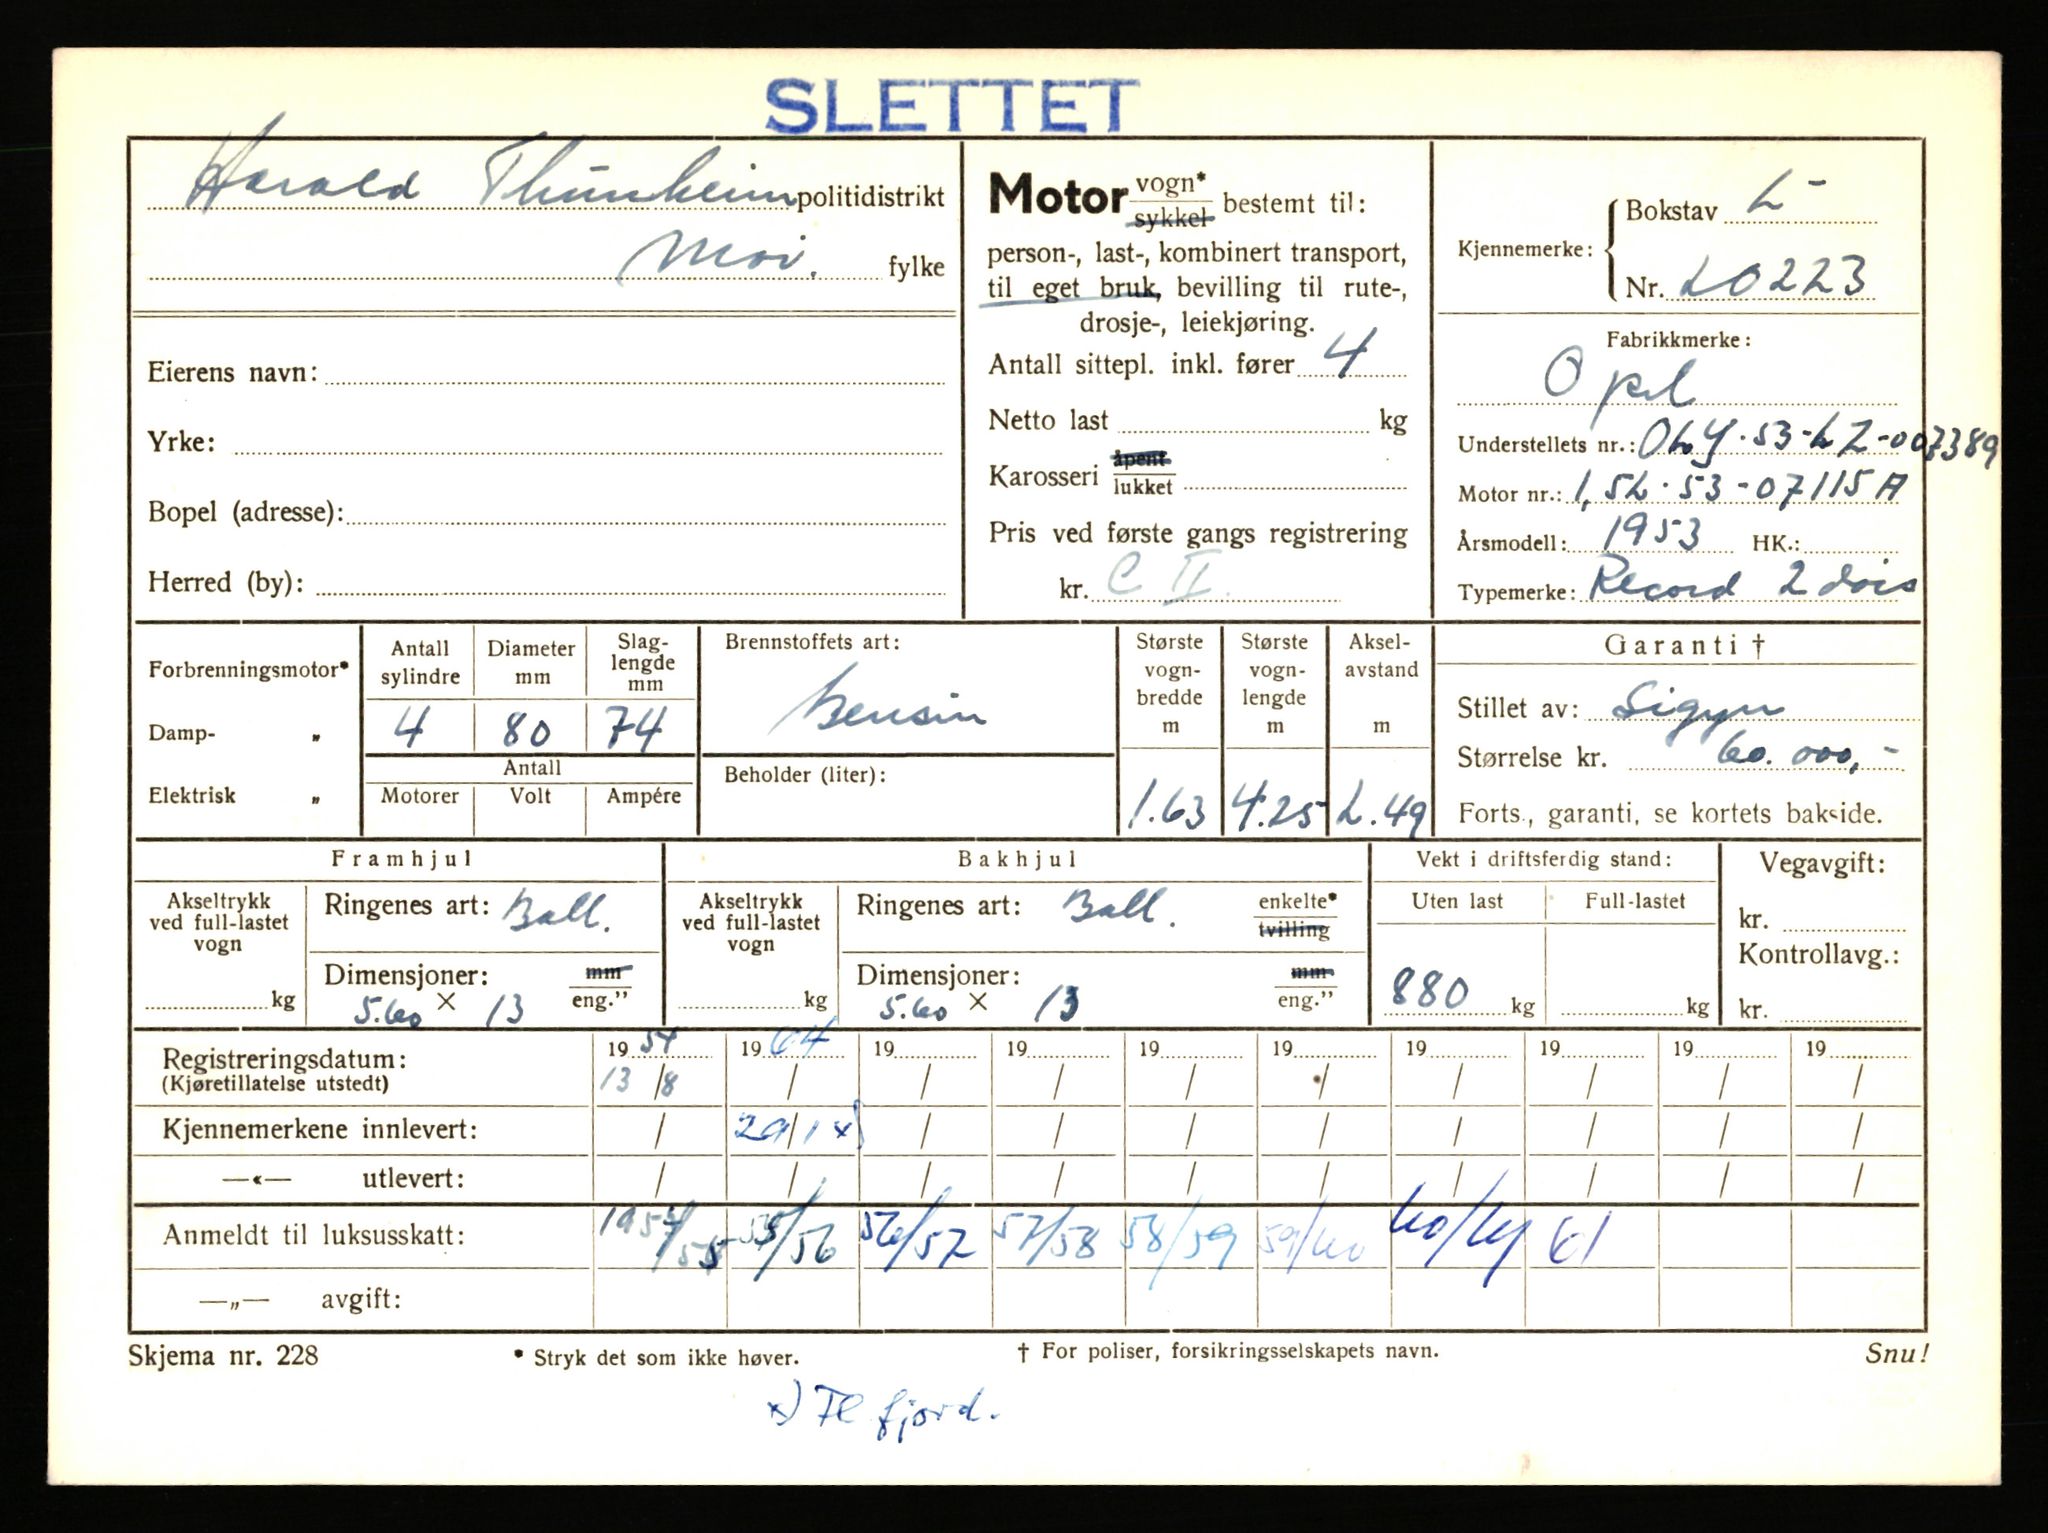 SLETTET
Harald Thunheim politidistrikt
Moi. fylke
Eierens navn:
Yrke:
Bopel (adresse):
Herred (by):
Motor vogn* sykkel bestemt til:
person-, last-, kombinert transport,
til eget bruk, bevilling til rute-,
drosje-, leiekjøring.
Antall sittepl. inkl. fører 4
Netto last kg
Karosseri åpent lukket
Pris ved første gangs registrering
kr. C II
Kjennemerke: Bokstav L-
Nr. 20223
Fabrikkmerke:
Opel
Understellets nr.:
Motor nr.: 1,5L-53-07115A
Årsmodell: 1953 HK.:
Typemerke: Record 2 dørs
Forbrenningsmotor*
Damp- „
Elektrisk „
Antall sylindre
Diameter mm
Slag-lengde mm
4 80 74
Antall
Motorer Volt Ampére
Brennstoffets art:
bensin
Beholder (liter):
Største vogn-bredde m
Største vogn-lengde m
Aksel-avstand m
1.63 4.25 2.49
Garanti †
Stillet av: Sigyn
Størrelse kr. 60.000,-
Forts., garanti, se kortets bakside.
Framhjul
Akseltrykk ved full-lastet vogn
kg
Ringenes art: Ball.
Dimensjoner: mm eng."
5.60 × 13
Bakhjul
Akseltrykk ved full-lastet vogn
kg
Ringenes art: Ball. enkelte* tvilling
Dimensjoner: mm eng."
5.60 × 13
Vekt i driftsferdig stand:
Uten last Full-lastet
880 kg kg
Vegavgift:
kr.
Kontrollavg.:
kr.
Registreringsdatum: 1954 1964 19 19 19 19 19 19 19 19
(Kjøretillatelse utstedt) 13/8 / / / / / / / / /
Kjennemerkene innlevert: / 29/1 x) / / / / / / / /
—«— utlevert: / / / / / / / / / /
Anmeldt til luksusskatt: 1954/55 55/56 56/57 57/58 58/59 59/60 60/61 61
—„— avgift:
Skjema nr. 228 * Stryk det som ikke høver. † For poliser, forsikringsselskapets navn. Snu!
x) Fl.fjord.